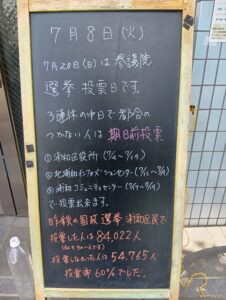 7月8日(火)
7月20日(日)は 参議院
選挙 投票日です。
3連休の中日で 都合の
つかない人は 期日前投票
①浦和区役所 (7/4〜7/19)
②北浦和インフォメーションセンター(7/12〜7/19)
③浦和コミュニティセンター(7/13〜7/19)
で 投票出来ます。
昨秋の国政選挙 浦和区民で
投票した人は 84,022人
投票しなかった人は 54,765人
投票率 60%でした。